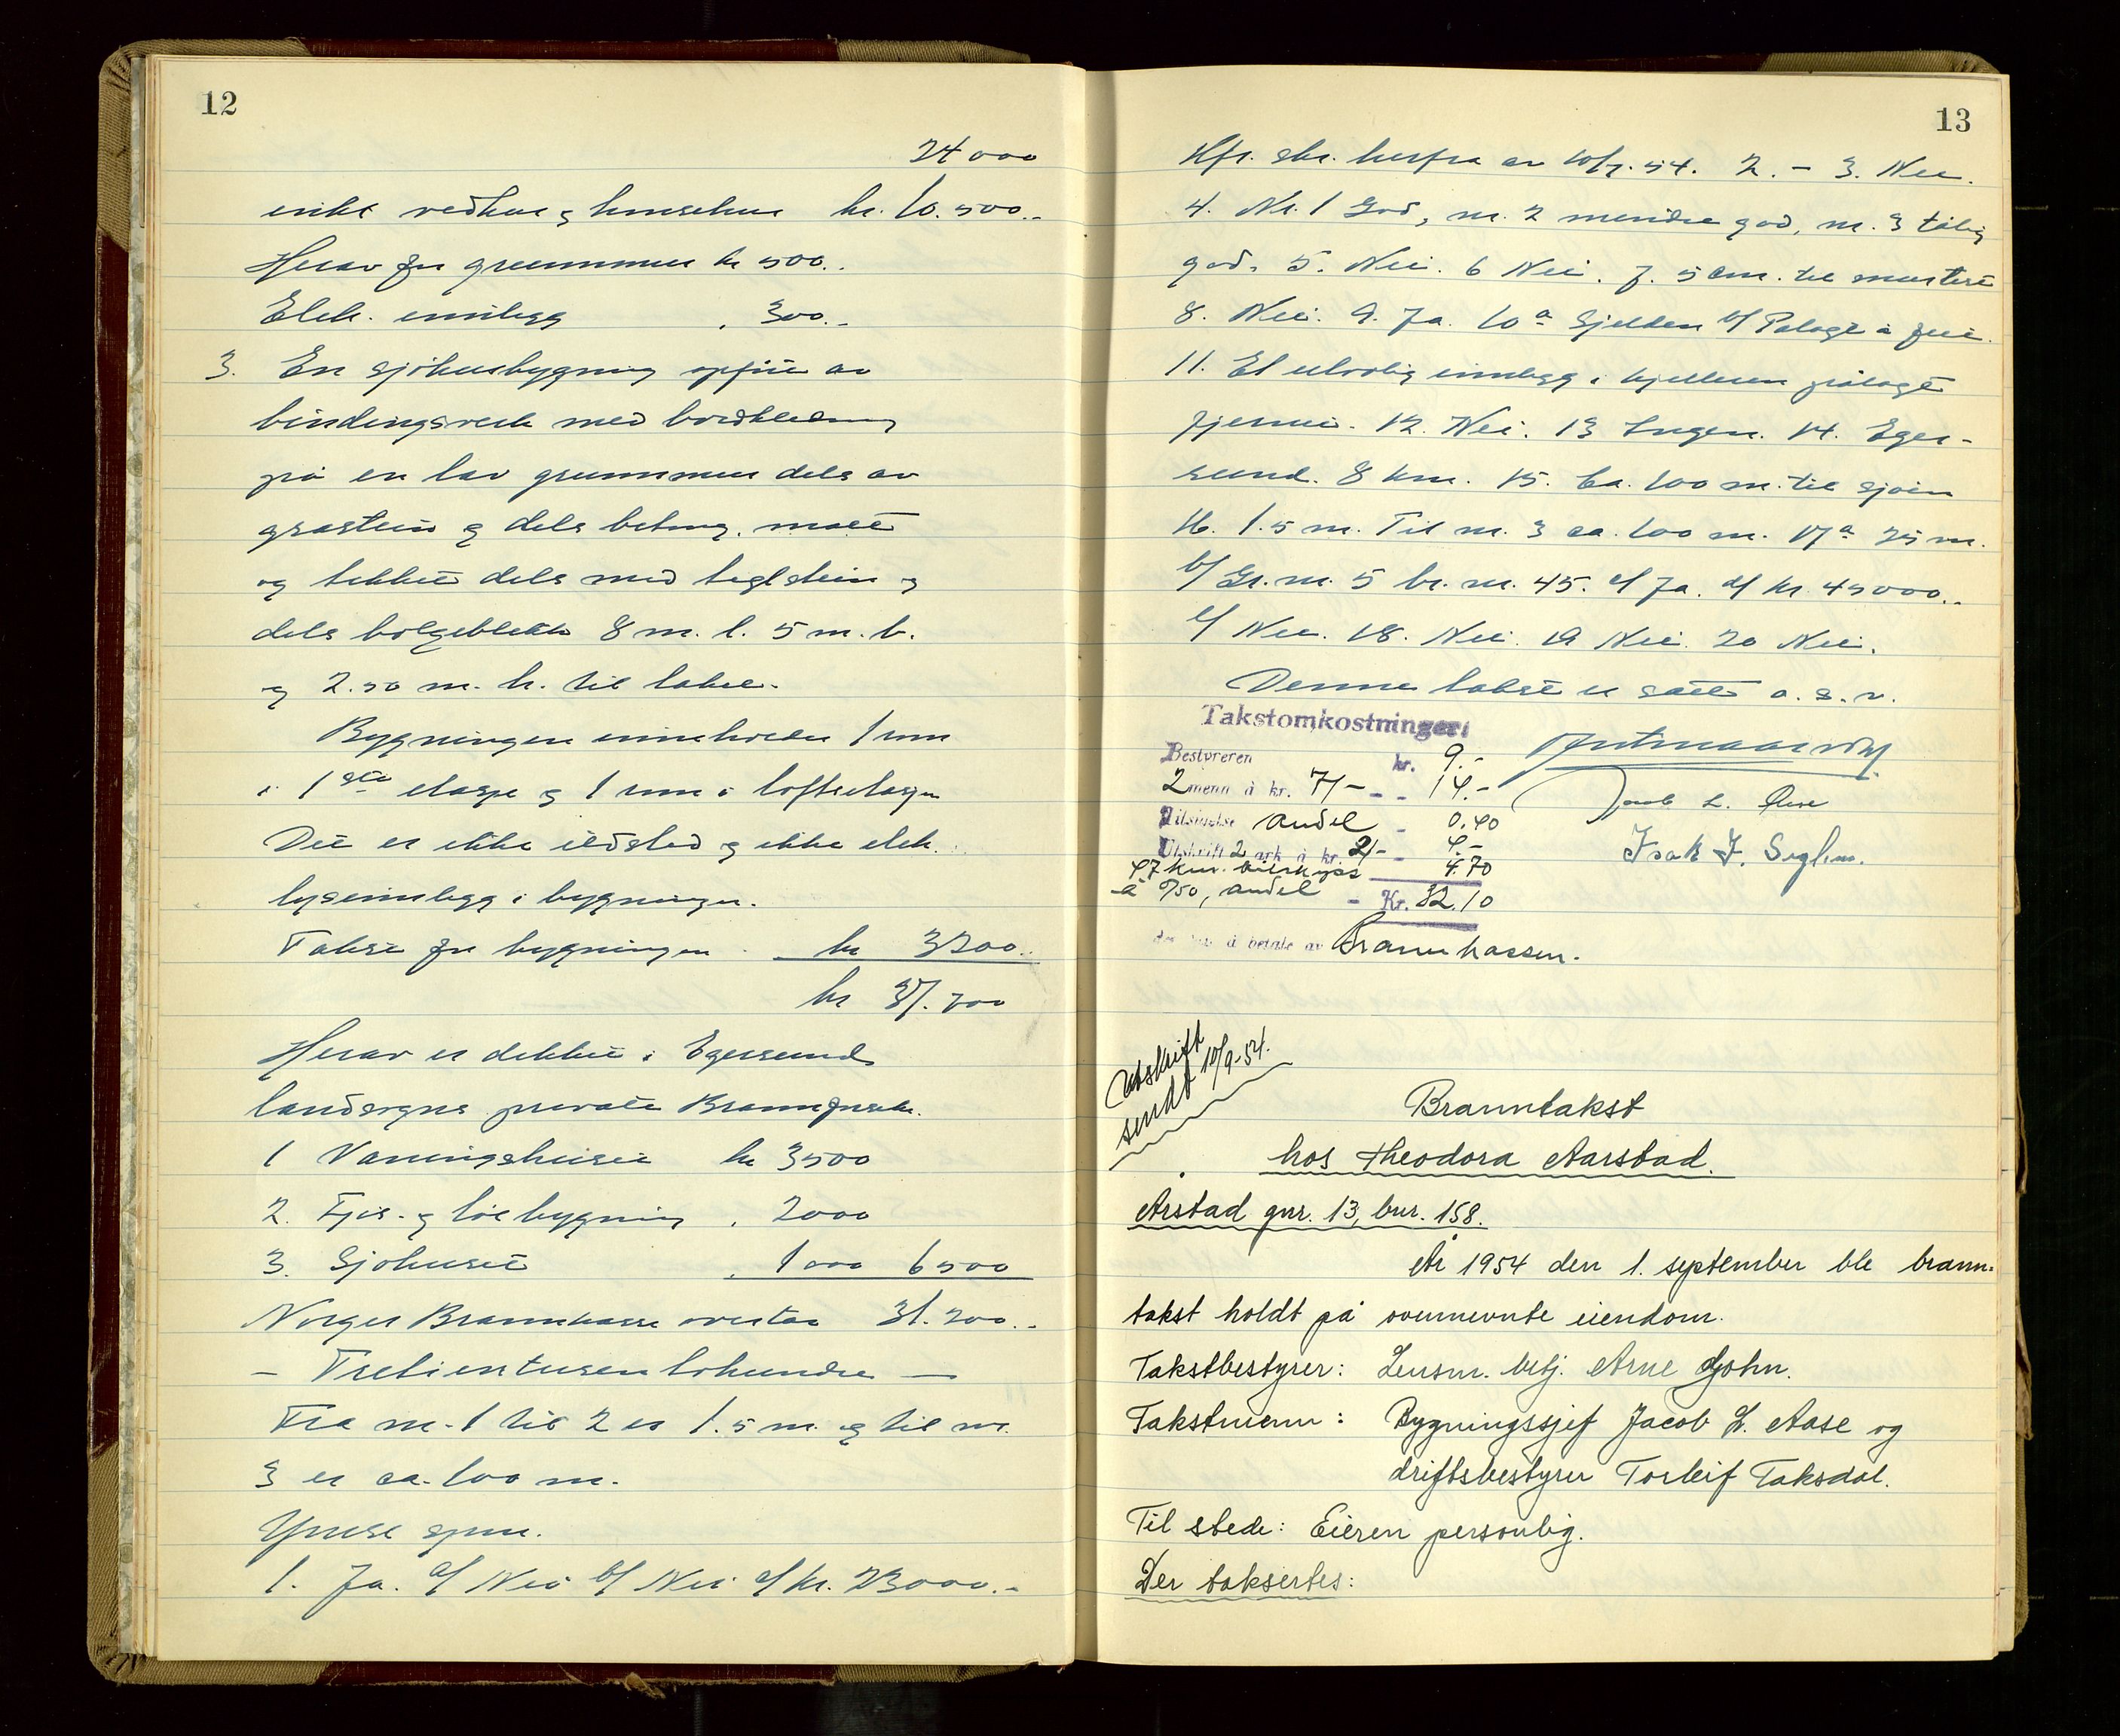 12
24 000
enkt vedhus og hønsehus kr. 10.500.-
Herav for grunnmur kr 500.-
Elek. innlegg " 300.-
3. En sjøhusbygning oppført av
bindingsverk med bordkledning
på en lav grunnmur dels av
gråstein og dels betong. malt
og tekket dels med teglstein og
dels bølgeblekk 8 m. l. 5 m. b.
og 2.50 m. h. til taket.
Bygningen inneholder 1 rum
i 1ste etasje og 1 rum i loftsetasjen
Det er ikke ildsted og ikke elek.
lysinnlegg i bygningen.
Takst for bygningen kr 3200.-
kr 37.700
Herav er dekket i Egersund
landsogns private Brannforsik.
1 Våningshuset kr 3500
2. Fjøs- og løebygning " 2000
3. Sjøhuset " 1000 6500
Norges Brannkasse overtar 31.200.-
- Trettientusentohundre -
Fra nr. 1 til 2 er 1.5 m. og til nr.
3 er ca. 100 m.
Øvrige spm.
1. Ja. a/ Nei b/ Nei c/ kr. 23000.-
13
Kfr. skr. herfra av 10/7.54. 2. - 3. Nei.
4. Nr. 1 God, nr. 2 mindre god, nr. 3 tålig
god. 5. Nei. 6 Nei. 7. 5 cm. til
8. Nei. 9. Ja. 10 a Sjelden b/ Pålagt å feie.
11. Et ulovlig innlegg i kjelleren pålagt
fjernet. 12. Nei. 13 Ingen. 14. Eger-
sund. 8 km. 15. Ca. 100 m. til sjøen
16. 1.5 m. Til nr. 3 ca. 100 m. 17 a 25 m.
b/ Gr. nr. 5 br. nr. 45. c/ Ja. d/ kr. 45000.-
e/ Nei. 18. Nei. 19 Nei. 20 Nei.
Denne takst er satt o. s. v.
Takstomkostninger:
Bestyreren kr. 9.-
2 menn à kr. 7/- - - 14.-
Tilsigelse andel - 0.40
Utskrift 2 ark à kr. 2/- - 4.-
47 km. bilskyss 4.70
à 0/50, andel - Kr. 32.10
Jacob L. Aase
Isak J. Seglem.
der bes å betale av Brannkassen.
Utskrift
sendt 10/9-54.
Branntakst
hos Theodora Aarstad.
Årstad gnr. 13, bnr. 158.
År 1954 den 1. september ble brann-
takst holdt på ovennevnte eiendom.
Takstbestyrer: Lensm. betj. Arne Gjøhn.
Takstmenn: Bygningssjef Jacob L. Aase og
driftsbestyrer Torleif Taksdal.
Til stede: Eieren personlig.
Der taksertes: